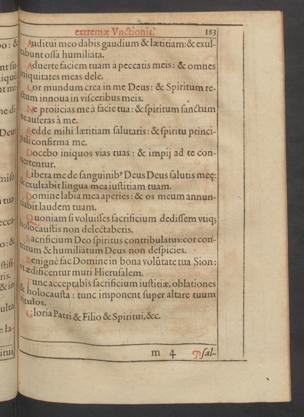 extremæ Vnctionis.
153
Auditui meo dabis gaudium & lætitiam: & exul-
tabunt ossa humiliata.
Aduerte faciem tuam à peccatis meis: & omnes
iniquitates meas dele.
Cor mundum crea in me Deus: & Spiritum re-
ctum innoua in visceribus meis.
Ne proiicias me à facie tua: & spiritum sanctum
ne auferas à me.
Redde mihi lætitiam salutaris: & spiritu princi-
pali confirma me.
Docebo iniquos vias tuas: & impij ad te con-
uertentur.
Libera me de sanguinibꝰ Deus Deus salutis meę:
& exultabit lingua mea iustitiam tuam.
Domine labia mea aperies: & os meum annun-
ciabit laudem tuam.
Quoniam si voluisses sacrificium dedissem vtiq;
holocaustis non delectaberis.
Sacrificium Deo spiritus contribulatus: cor con-
tritum & humiliatum Deus non despicies.
Benignè fac Domine in bona volũtate tua Sion:
vt ædificentur muri Hierusalem.
Tunc acceptabis sacrificium iustitiæ, oblationes
& holocausta: tunc imponent super altare tuum
vitulos.
Gloria Patri & Filio & Spiritui, &c.
m 4
Psal-